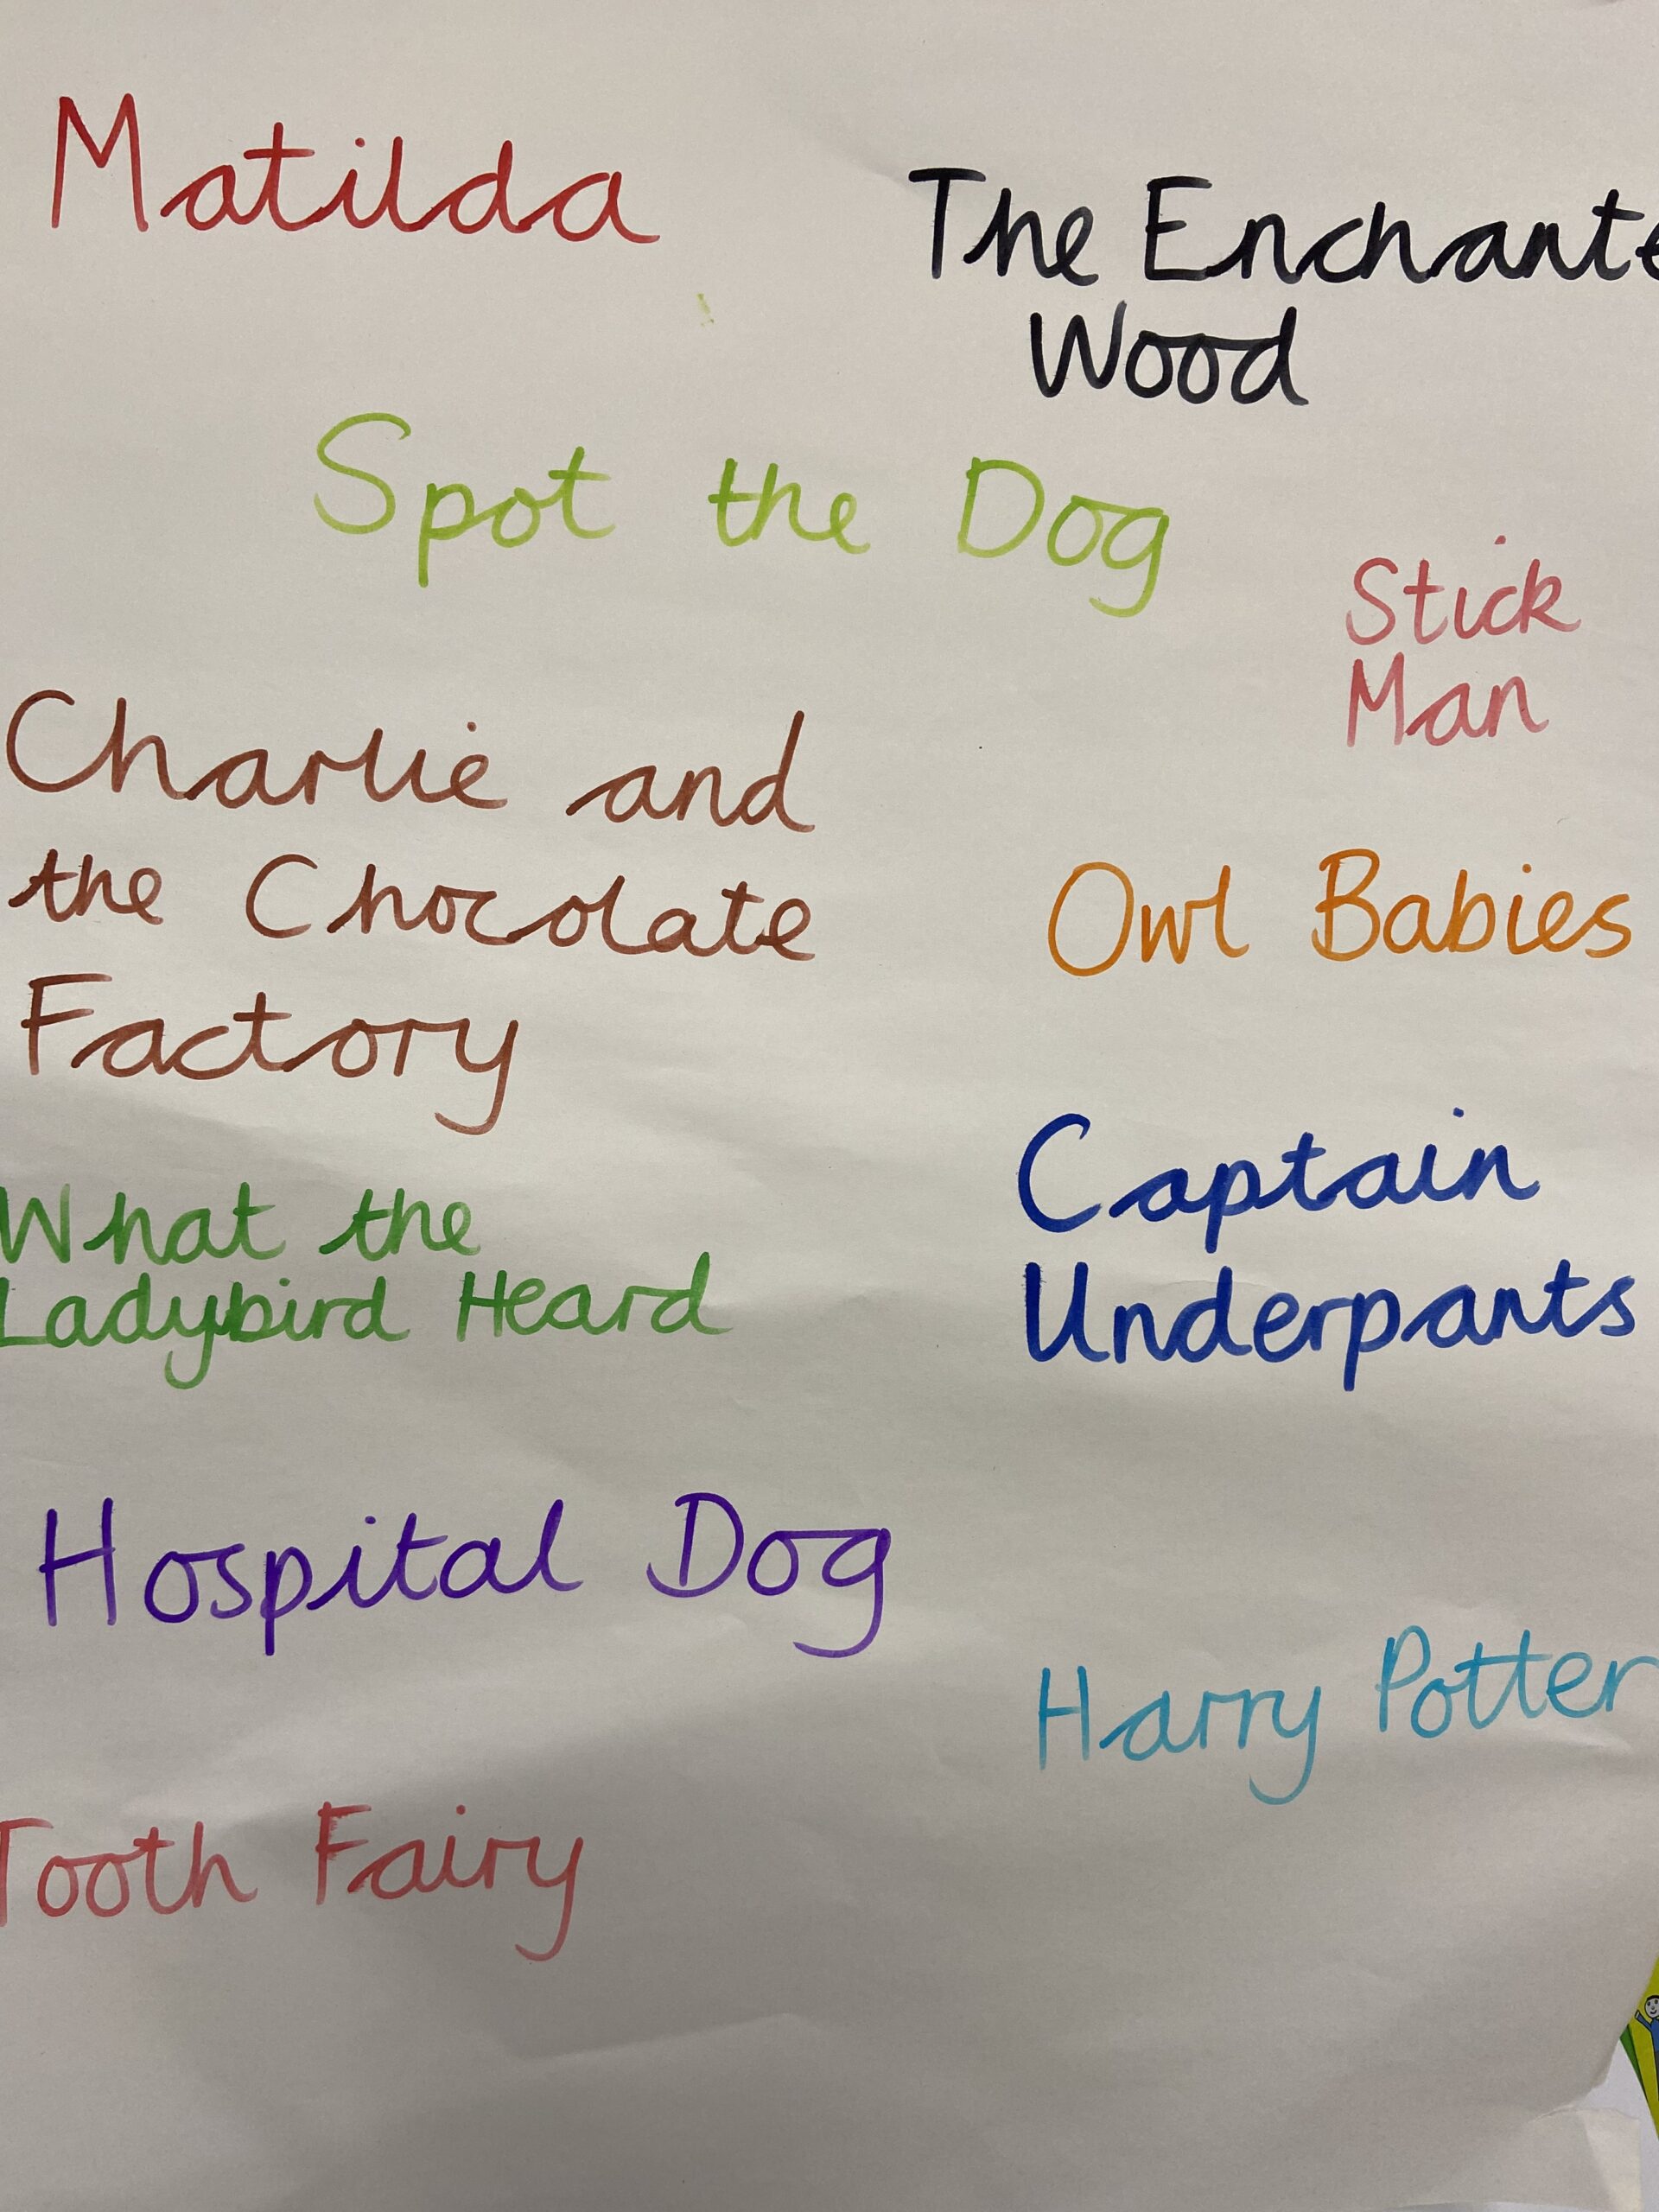 Matilda
The Enchante
Wood
Spot the Dog
Stick
Man
Charlie and
the Chocolate
Factory
Owl Babies
What the
Ladybird Heard
Captain
Underpants
Hospital Dog
Harry Potter
Tooth Fairy